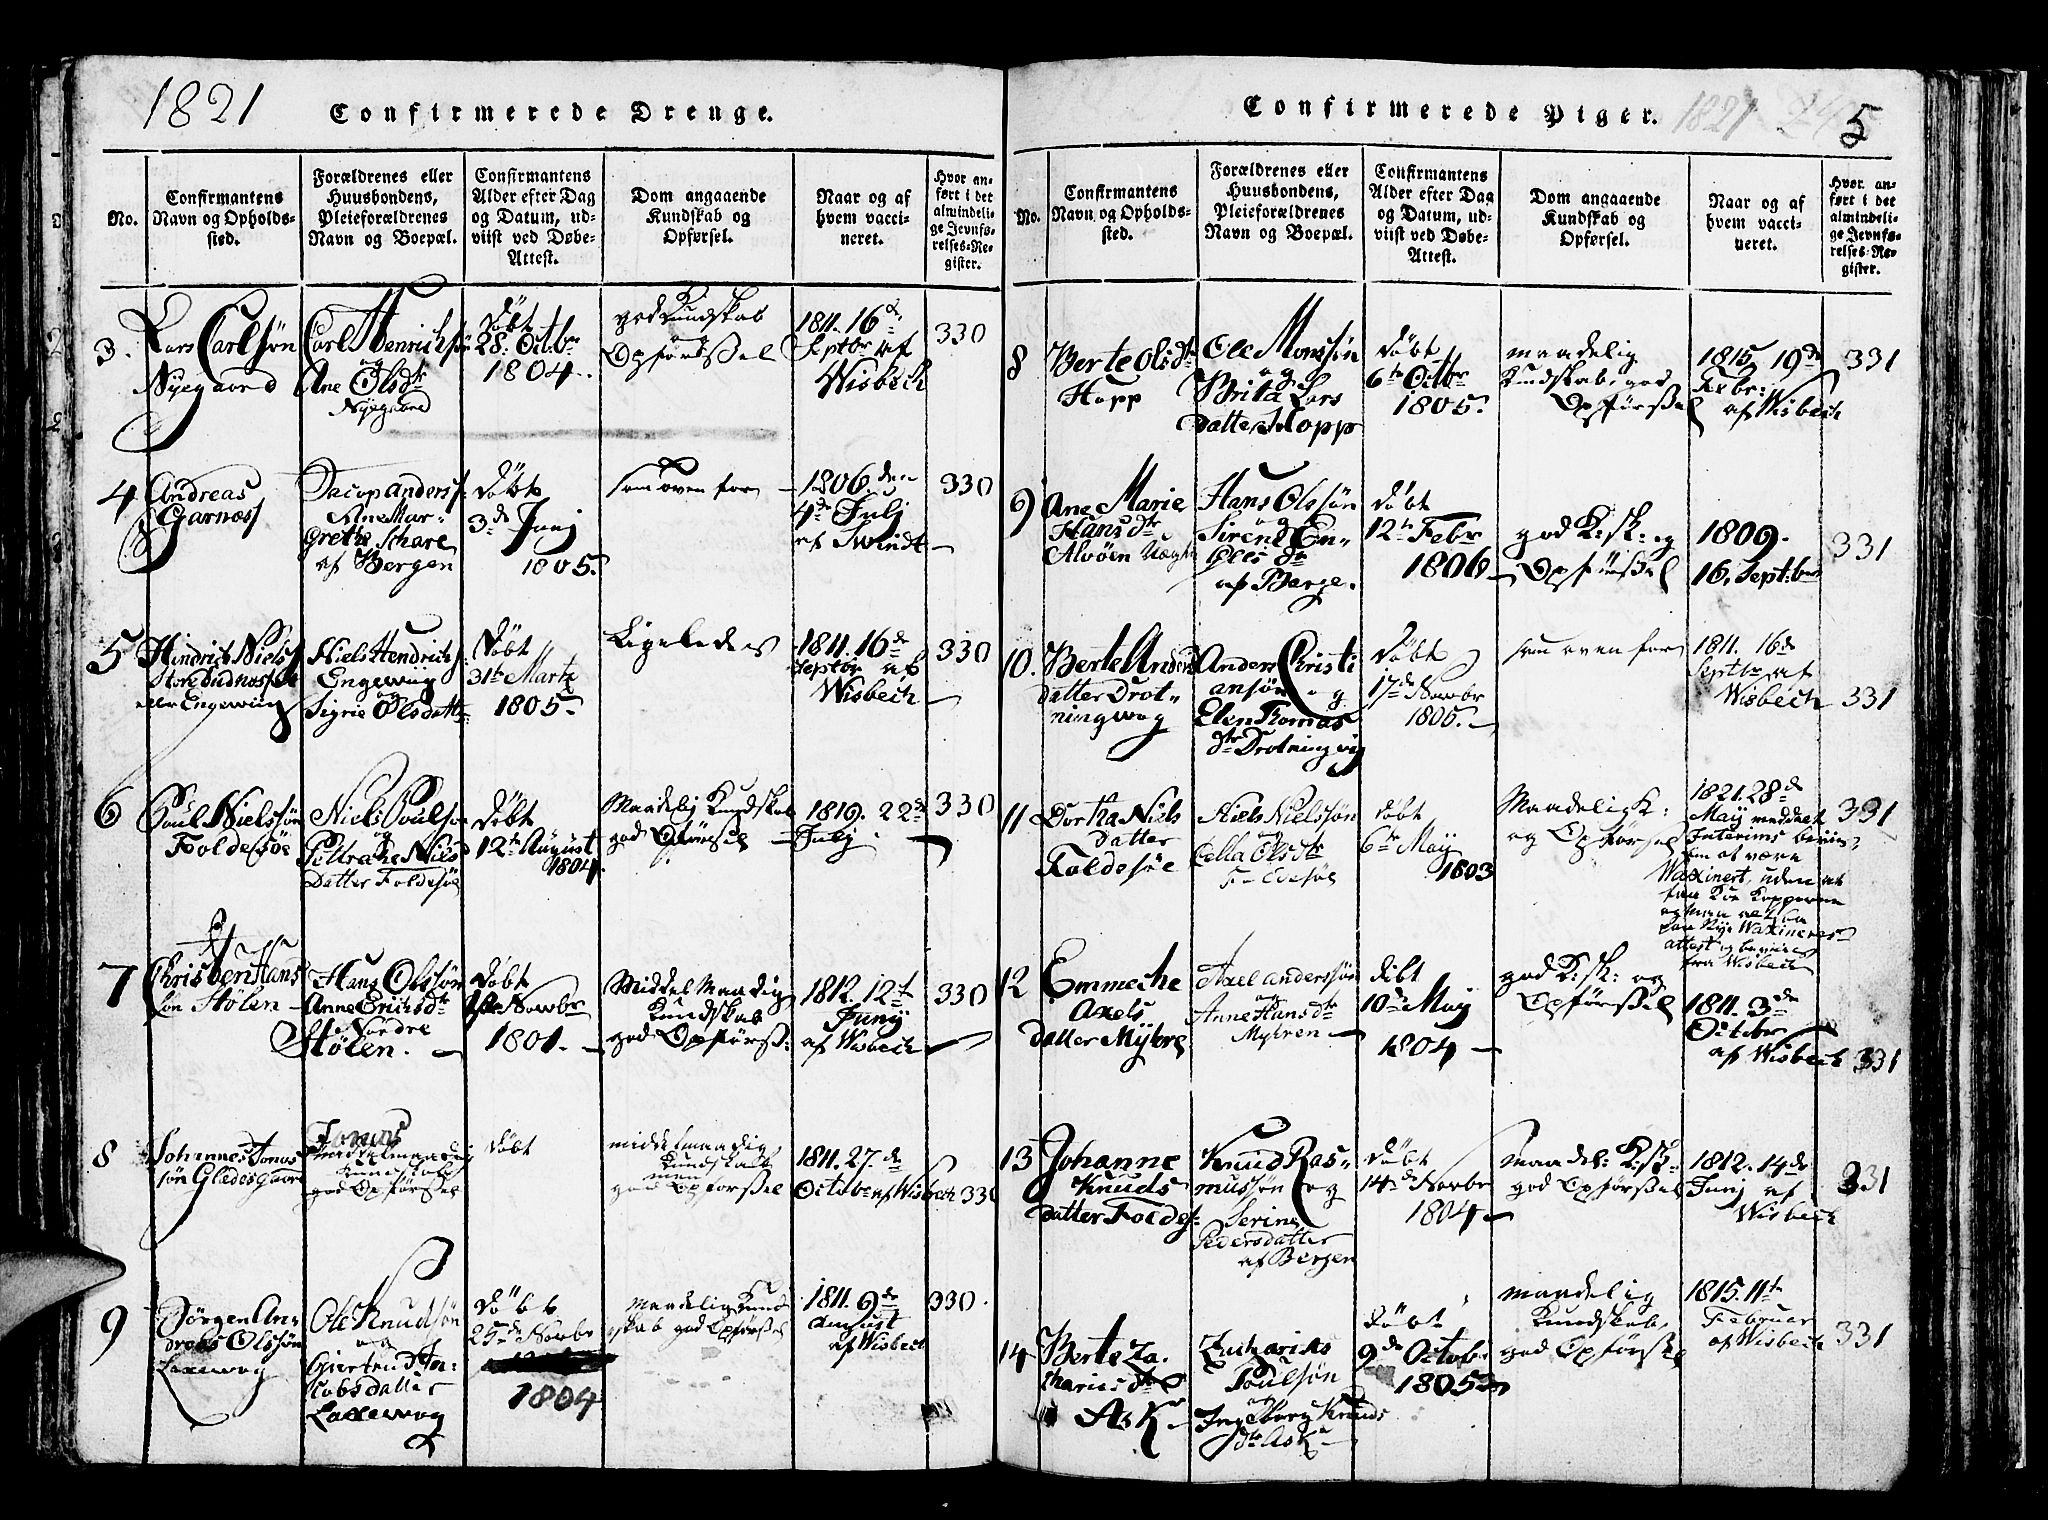 1821
Confirmerede Drenge.
No.
Confirmantens
Navn og Opholds-
sted.
Forældrenes eller
Huusbondens,
Pleieforældrenes
Navn og Boepæl.
Confirmantens
Alder efter Dag
og Datum, ud-
viist ved Døbe-
Attest.
Dom angaaende
Kundskab og
Opførsel.
Naar og af
hvem vacci-
neret.
Hvor an-
ført i det
almindeli-
ge Jevnfø-
relses-Re-
gister.
3.
Lars Carlsøn
Nyegaard
Carl Henrichsøn
og
Ane Olsdtr
Nyegaard
Døbt
28. Octbr
1804.
god Kundskab
Opførssel
1811. 16de
Septbr af
Wisbech
330
4
Andreas
Garnæs
Jacop Anders
Ane Mar-
Grethe Schare
af Bergen
Døbt
3de Junj
1805.
som oven for
1806. den
4de Julj
af Swindt
330
5
Hindrich Niels
eller Engewiig
Niels Hendrich
Engewog
og
Sigrie Olsdatter
Døbt
31te Martz
1805.
Ligeledes
1811. 16de
Septbr af
Wisbech
330
6
Poul Nielsøn
Foldesøe
Niels Poulsøn
og
Niels
Datter Foldesøe
Døbt
12te August
1804.
Maadelig Kundskab
god Opførsel
1819. 22de
Julj
330
7
Christen Hans
søn Stølen
Hans Olssøn
Anne Erichsdtr
Nordre
Stølen.
Døbt
Novbr
1801.
Middel Maadig
Kundskab
god Opførss:
1812. 12te
Junij
af Wisbech
330
8
Johannes Jonas
søn Gledesgaard
Jonas
middelmaadig
Kundskab
god Opførssel
Døbt
middelmaadig
Kundskab
men
god Opførssel
1811. 27. de
Octobr af Wisbech
330
9
Jørgen An-
dreas Olssøn
Laxewog
Ole Knudsøn
og
Giertrud Ja-
cobsdatter
Laxewog
Døbt
25de Novbr
1804
Maadelig Kund
skab god Opførssel
1811. 9de
August
af Wisbech
330.
Confirmerede Piger.
1821
5
No.
Confirmantens
Navn og Opholds-
sted.
Forældrenes eller
Huusbondens,
Pleieforældrenes
Navn og Boepæl.
Confirmantens
Alder efter Dag
og Datum, ud-
viist ved Døbe-
Attest.
Dom angaaende
Kundskab og
Opførsel.
Naar og af
hvem vacci-
neret.
Hvor an-
ført i det
almindeli-
ge Jevnfø-
relses-Re-
gister.
8
Berte Olsdtr
Hopp
Ole Monssøn
og
Brita Lars
datter Hopp
Døbt
6te Octbr
1805.
maadelig
Kundskab, god
Opførssel
1815, 19de
Febr:
af Wisbech
331
9
Ane Marie
Hansdtr
Alvøen
Hans Olssøn
og
Sirene En-
gelsdtr
af Berge.
Døbt
12te Febr
1806
god K:sk: og
Opførssel
1809.
16. Septbr
331
10.
Berte Anders
datter Drot-
ningwog
Anders Christi
ansøn og
Elen Thomas
dtr Drotningvig
Døbt
17de Novbr
1805.
som oven for
1811. 16de
Septbr af
Wisbech
331
11
Dortha Niels
Datter
Foldesøe
Niels Nielssøn
og
Cella Olsdtr
Foldesøe
døbt
6te Maij
1803
Maadelig K:
og Opførssel
1821. 28de
Maij meddelt
Interims beviis
om at være
Waxinert, uden at
faae Koe Kopperne
attest
fra Wisbech
331
12
Emmeche
Axels
datter Myhre
Axel Anderssøn
og
Anne Hansdtr
Myhren
døbt
10de Maij
1804
god K:sk: og
Opførssel
1811. 3de
October
af Wisbech
331
13
Johanne
Knuds
datter Foldes:
Knud Ras-
mussøn og
Serine
Pedersdatter
af Bergen
Døbt
14de Novbr
1804
Maadel: K:sk:
god Opførssel
1812. 14de
Junj af
Wisbech
331
14
Berte Za-
chariasdtr
Ask
Zacharias
Poulsøn
og
Ingeborg Knuds
dtr Ask
Døbt
9de Octobr
1805
maadelig
Kundskab,
god Opførssel
1815. 11te
Februar
af Wisbech
331